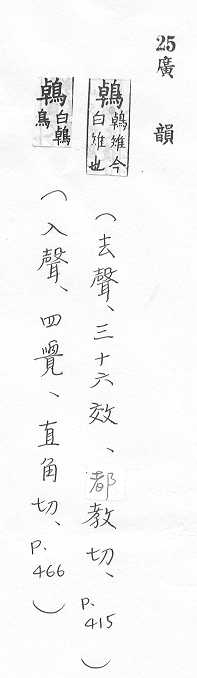 25 廣韻
鵫 鵫雉今白雉也 (去聲、三十六效、都教切、p.415)
鵫 白鵫鳥 (入聲、四覺、直角切、p.466)